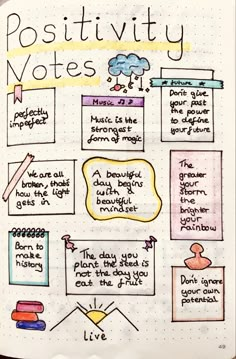 Positivity
Notes
perfectly
imperfect
Music
Music is the
strongest
form of magic
future
Don't give
your past
the power
to define
your future
We are all
broken, that's
how the light
gets in
A beautiful
day begins
with a
beautiful
mindset
The
greater
your
storm
the
brighter
your
rainbow
Born to
make
history
The day you
plant the seed is
not the day you
eat the fruit
Don't ignore
your own
potential
live